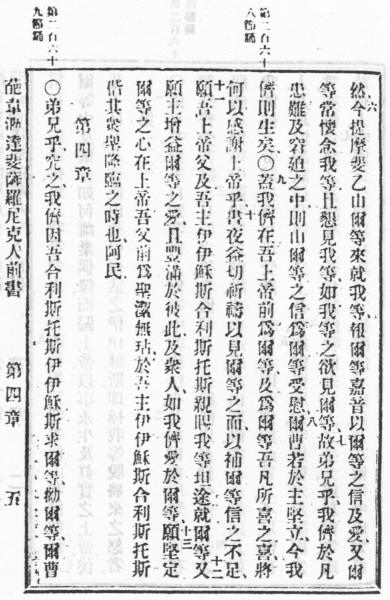 第二百六十
八節誦
六然今提摩斐乙由爾等來就我等、報爾等嘉音、以爾等之信及愛、又爾
等常懷念我等、且懇見我等、如我等之欲見爾等、七故弟兄乎、我儕於凡
患難及窘迫之中、則由爾等之信、為爾等受慰、八爾曹若於主堅立、今我
儕則生矣、〇九蓋我儕在吾上帝前、為爾等、及為爾等吾凡所喜之喜、將
何以感謝上帝乎、十晝夜益切祈禱、以見爾等之面、以補爾等信之不足、
十一願吾上帝父、及吾主伊伊穌斯合利斯托斯、親賜我等坦途就爾等、十二又
願主增益爾等之愛、且豐滿於彼此及衆人、如我儕愛於爾等、十三願堅定
爾等之心、在上帝吾父前、為聖潔無玷、於吾主伊伊穌斯合利斯托斯
偕其衆聖降臨之時也、阿民、
第四章
第二百六十
九節誦
〇弟兄乎、究之我儕因吾合利斯托斯伊伊穌斯、求爾等、勸爾等、爾曹
葩韋泐達斐薩羅尼克人前書 第四章 五